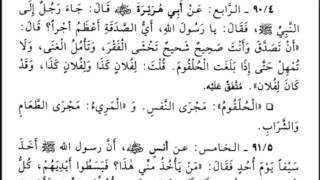 ٩٠/٤ - الرَّابِعُ: عَنْ أَبِي هُرَيْرَةَ ﷺ، قَالَ: جَاءَ رَجُلٌ إِلَى
النَّبِيِّ ﷺ، فَقَالَ: يَا رَسُولَ اللهِ، أَيُّ الصَّدَقَةِ أَعْظَمُ أَجْراً؟ قَالَ:
«أَنْ تَصَدَّقَ وَأَنْتَ صَحِيحٌ شَحِيحٌ تَخْشَى الْفَقْرَ، وَتَأْمُلُ الْغِنَى، وَلَا
تُمْهِلْ حَتَّى إِذَا بَلَغَتِ الْحُلْقُومَ. قُلْتَ: لِفُلَانٍ كَذَا، وَلِفُلَانٍ كَذَا، وَقَدْ
كَانَ لِفُلَانٍ» مُتَّفَقٌ عَلَيْهِ.
«الْحُلْقُومُ»: مَجْرَى النَّفَسِ. وَ«الْمَرِيءُ»: مَجْرَى الطَّعَامِ
وَالشَّرَابِ.
٩١/٥ - الخامس: عن أنس، أَنَّ رسول الله ﷺ أَخَذَ
سَيْفاً يَوْمَ أُحُدٍ فَقَالَ: «مَنْ يَأْخُذُ مِنِّي هَذَا؟ فَبَسَطُوا أَيْدِيَهُمْ، كُلُّ